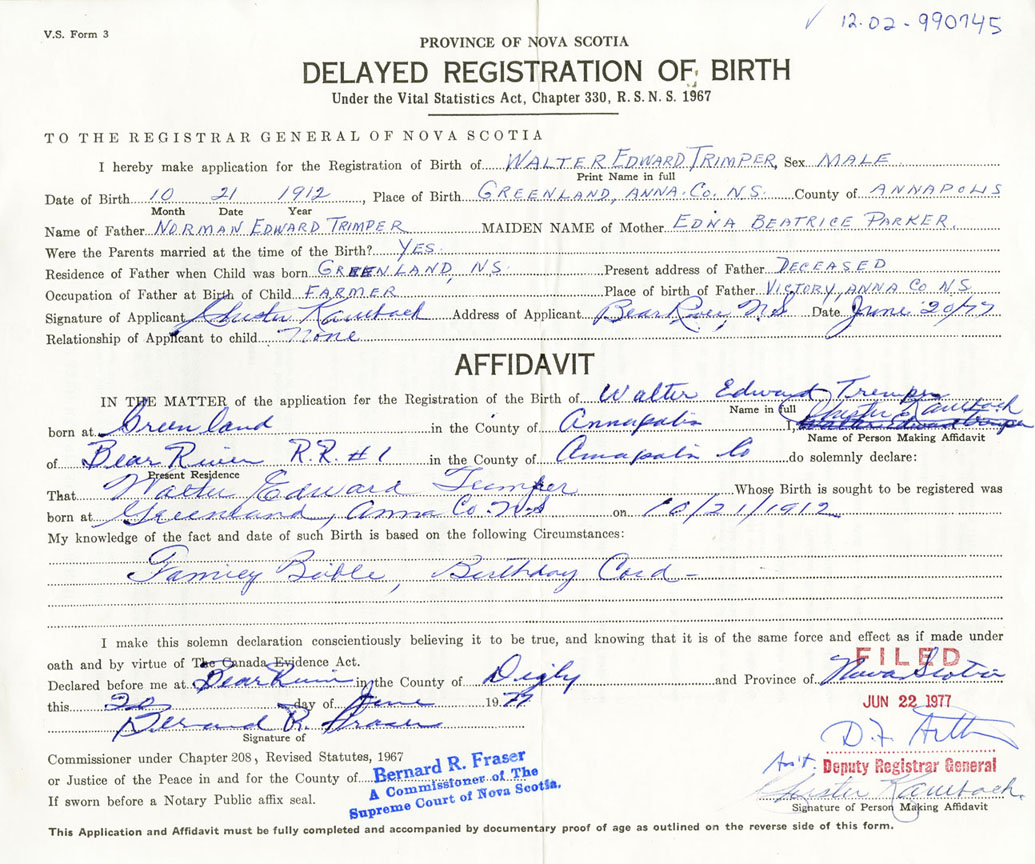 V.S. Form 3
✓ 12-02-990745
PROVINCE OF NOVA SCOTIA
DELAYED REGISTRATION OF BIRTH
Under the Vital Statistics Act, Chapter 330, R. S. N. S. 1967
TO THE REGISTRAR GENERAL OF NOVA SCOTIA
I hereby make application for the Registration of Birth of WALTER EDWARD TRIMPER, Sex MALE
Print Name in full
Date of Birth 10 21 1912, Place of Birth GREENLAND, ANNA. CO. N.S. County of ANNAPOLIS
Month Date Year
Name of Father NORMAN EDWARD TRIMPER MAIDEN NAME of Mother EDNA BEATRICE PARKER.
Were the Parents married at the time of the Birth? YES.
Residence of Father when Child was born GREENLAND, N.S. Present address of Father DECEASED
Occupation of Father at Birth of Child FARMER Place of birth of Father VICTORY, ANNA CO N.S
Signature of Applicant Address of Applicant Bear River, N.S Date June 20/77
Relationship of Applicant to child None
AFFIDAVIT
IN THE MATTER of the application for the Registration of the Birth of Walter Edward Trimper
Name in full
born at Greenland in the County of Annapolis I,
Name of Person Making Affidavit
of Bear River R.R. #1 in the County of Annapolis Co do solemnly declare:
Present Residence
That Walter Edward Trimper Whose Birth is sought to be registered was
born at Greenland, Anna Co. N.S on 10/21/1912
My knowledge of the fact and date of such Birth is based on the following Circumstances:
Family Bible, Birthday Card -
I make this solemn declaration conscientiously believing it to be true, and knowing that it is of the same force and effect as if made under
oath and by virtue of The Canada Evidence Act.
FILED
Declared before me at Bear River in the County of Digby and Province of Nova Scotia
this 20 day of June 1977
JUN 22 1977
Bernard R. Fraser
Signature of
Commissioner under Chapter 208, Revised Statutes, 1967
or Justice of the Peace in and for the County of
Bernard R. Fraser
A Commissioner of The
Supreme Court of Nova Scotia.
Ass't Deputy Registrar General
If sworn before a Notary Public affix seal.
Signature of Person Making Affidavit
This Application and Affidavit must be fully completed and accompanied by documentary proof of age as outlined on the reverse side of this form.